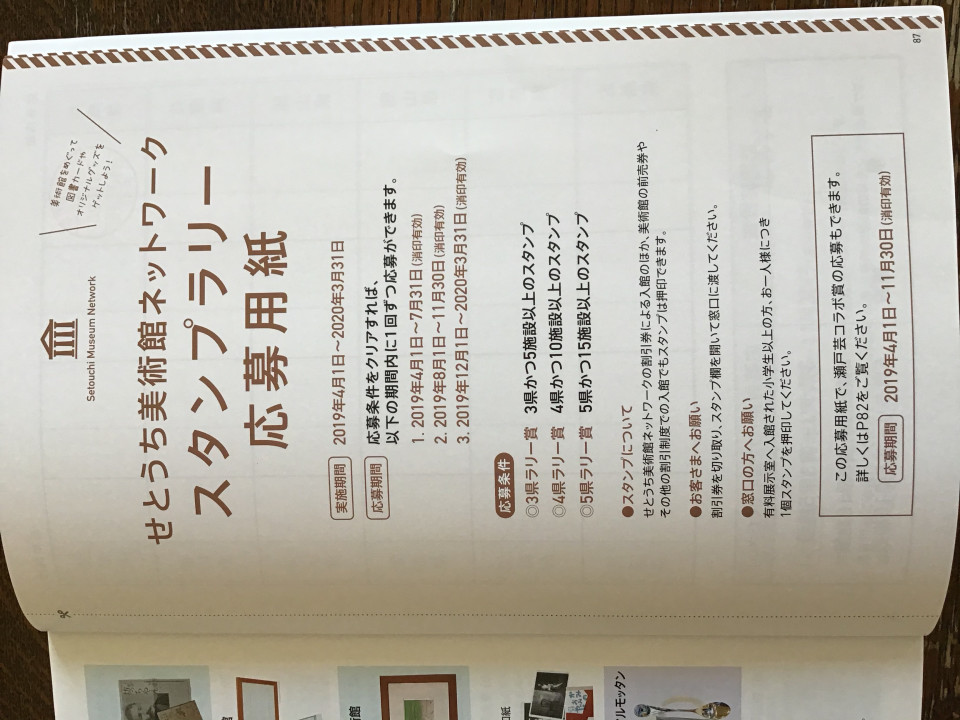 Setouchi Museum Network
美術館をめぐって
図書カードや
オリジナルグッズを
ゲットしよう!
せとうち美術館ネットワーク
スタンプラリー
応募用紙
実施期間 2019年4月1日~2020年3月31日
応募期間 応募条件をクリアすれば、
以下の期間内に1回ずつ応募ができます。
1. 2019年4月1日~7月31日(消印有効)
2. 2019年8月1日~11月30日(消印有効)
3. 2019年12月1日~2020年3月31日(消印有効)
応募条件
◎3県ラリー賞 3県かつ5施設以上のスタンプ
◎4県ラリー賞 4県かつ10施設以上のスタンプ
◎5県ラリー賞 5県かつ15施設以上のスタンプ
●スタンプについて
せとうち美術館ネットワークの割引券による入館のほか、美術館の前売券や
その他の割引制度での入館でもスタンプは押印できます。
●お客さまへお願い
割引券を切り取り、スタンプ欄を開いて窓口に渡してください。
●窓口の方へお願い
有料展示室へ入館された小学生以上の方、お一人様につき
1個スタンプを押印してください。
この応募用紙で、瀬戸芸コラボ賞の応募もできます。
詳しくはP82をご覧ください。
応募期間 2019年4月1日~11月30日(消印有効)
87
術館
和紙
ルモッタン